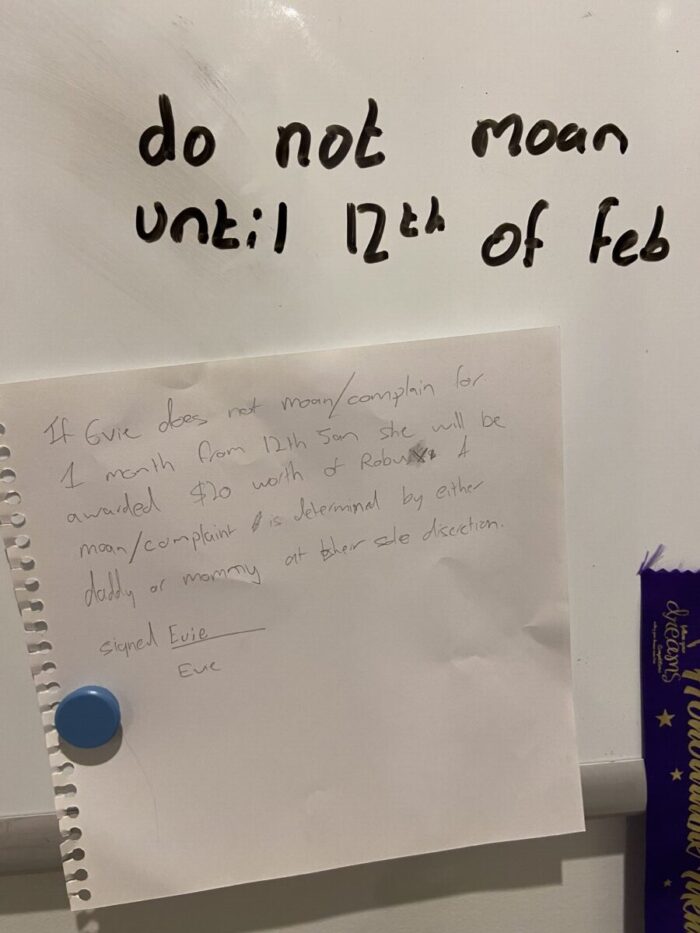 do not moan
until 12th of Feb
If Evie does not moan/complain for
1 month from 12th Jan she will be
awarded $20 worth of Robux. A
moan/complaint is determined by either
daddy or mommy at their sole discretion.
signed Evie
Evie
dreams
Honourable